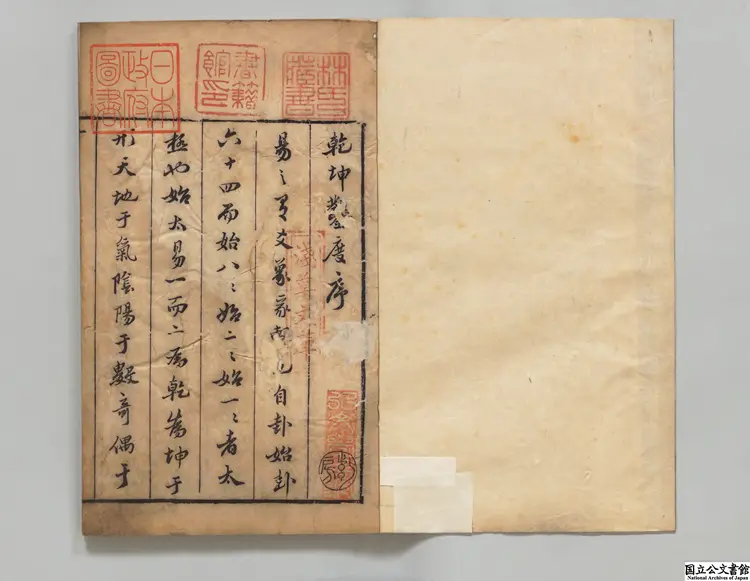 林氏
藏書
書籍
館印
日本
政府
圖書
乾坤鑿度序
易〻有爻象彖自卦始卦
六十四而始八〻始二〻始一〻者太
極也始太易一而二為乾為坤于
形天地于氣陰陽于數奇偶于
淺草文庫
国立公文書館
National Archives of Japan